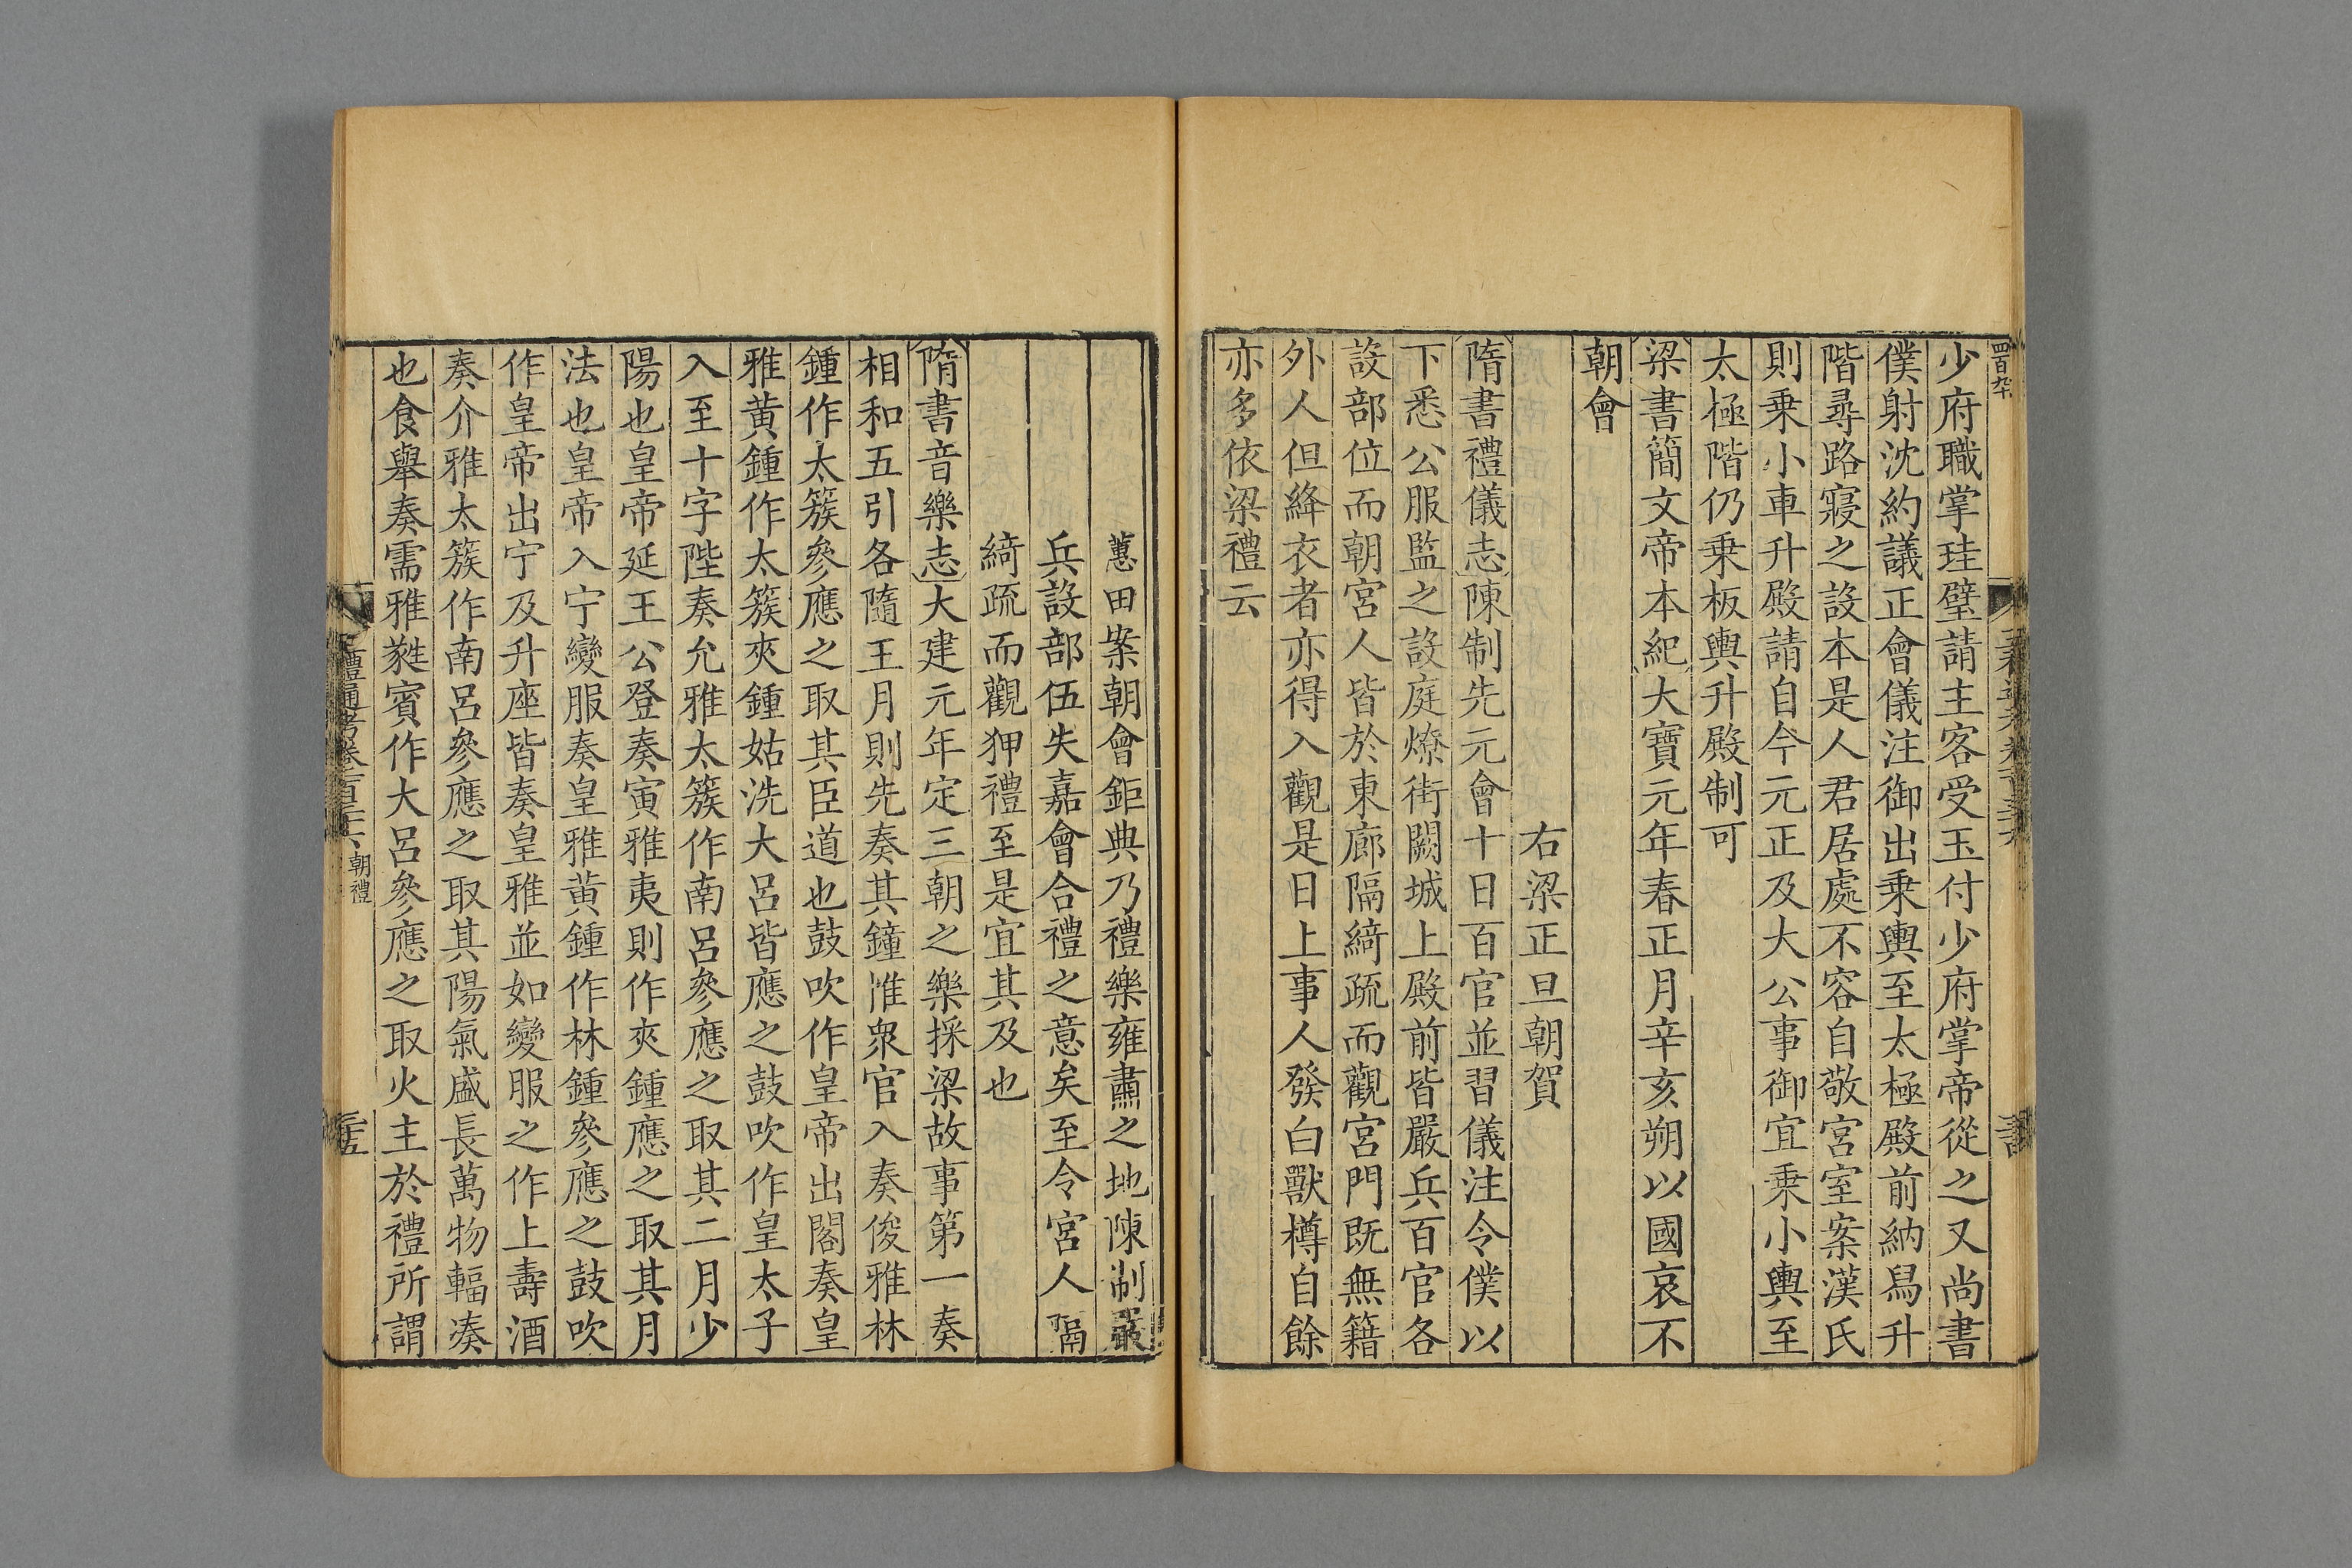 少府職掌珪璧請主客受玉付少府掌帝從之又尚書
僕射沈約議正會儀注御出乗輿至太極殿前納舄升
階尋路寢之設本是人君居處不容自敬宮室案漢氏
則乗小車升殿請自今元正及大公事御宜乗小輿至
太極階仍乗板輿升殿制可
梁書簡文帝本紀大寶元年春正月辛亥朔以國哀不
朝會
右梁正旦朝賀
隋書禮儀志陳制先元會十日百官並習儀注令僕以
下悉公服監之設庭燎街闕城上殿前皆嚴兵百官各
設部位而朝宮人皆於東廊隔綺疏而觀宮門既無籍
外人但絳衣者亦得入觀是日上事人發白獸樽自餘
亦多依梁禮云
蕙田案朝會鉅典乃禮樂雍肅之地陳制嚴
兵設部伍失嘉會合禮之意矣至令宮人隔
綺疏而觀狎禮至是宜其及也
隋書音樂志大建元年定三朝之樂採梁故事第一奏
相和五引各隨王月則先奏其鐘惟衆官入奏俊雅林
鍾作太簇參應之取其臣道也鼓吹作皇帝出閤奏皇
雅黄鍾作太簇夾鍾姑洗大呂皆應之鼓吹作皇太子
入至十字陛奏允雅太簇作南呂參應之取其二月少
陽也皇帝延王公登奏寅雅夷則作夾鍾應之取其月
法也皇帝入宁變服奏皇雅黄鍾作林鍾參應之鼓吹
作皇帝出宁及升座皆奏皇雅並如變服之作上壽酒
奏介雅太簇作南呂參應之取其陽氣盛長萬物輻凑
也食舉奏需雅蕤賓作大呂參應之取火主於禮所謂
禮通考卷一百三十六 朝禮